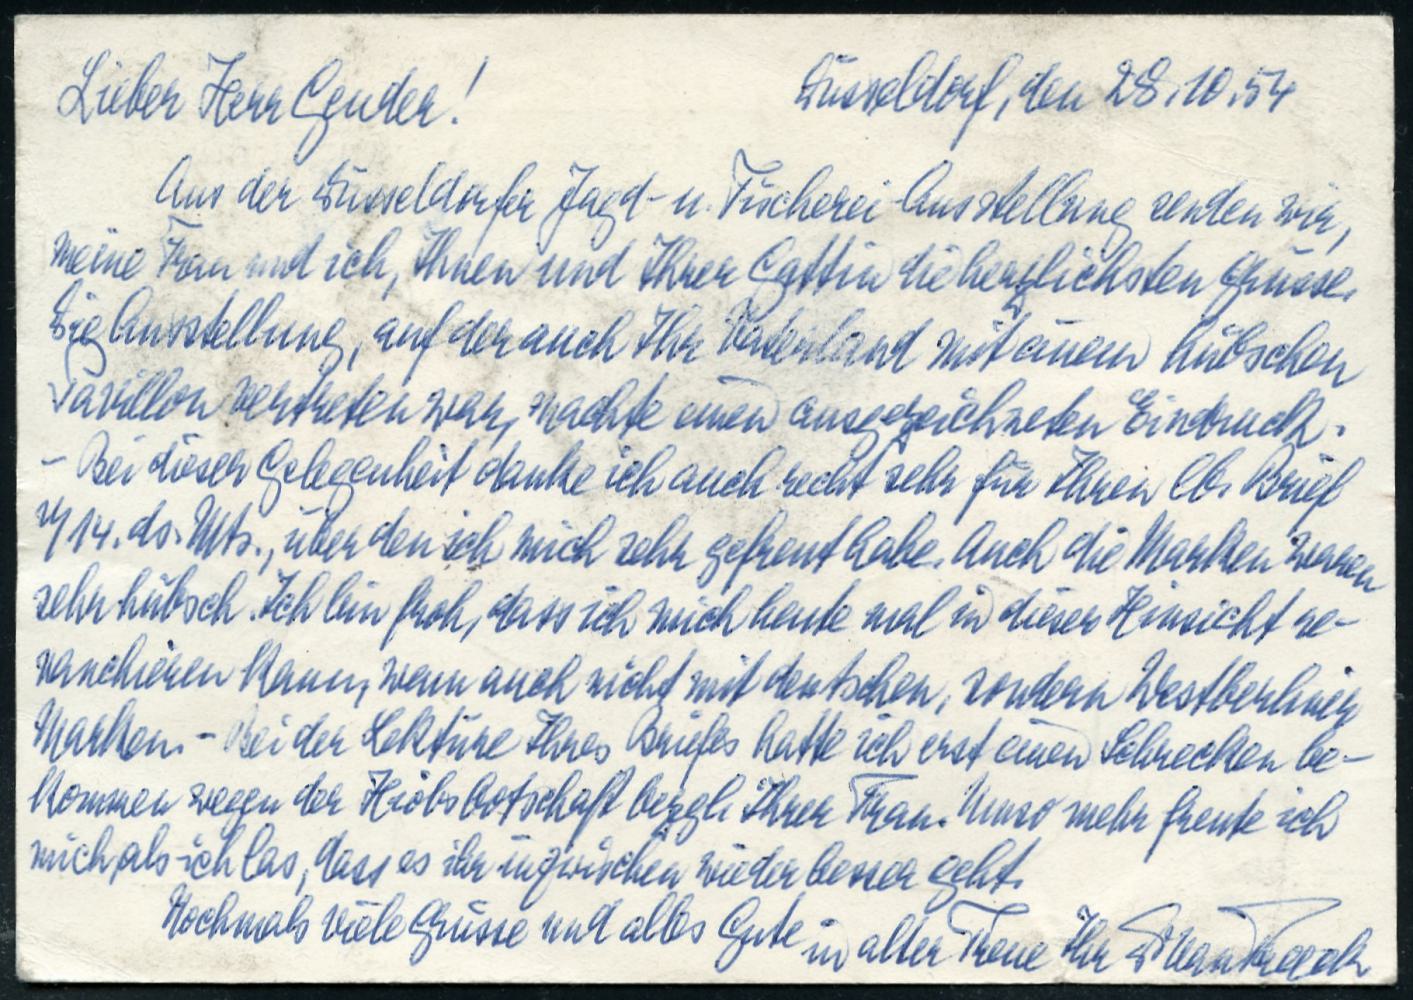 Lieber Herr Gender!
Düsseldorf, den 28.10.54
Aus der Düsseldorfer Jagd- u. Fischerei-Ausstellung senden wir,
meine Frau und ich, Ihnen und Ihrer Gattin die herzlichsten Grüsse.
Die Ausstellung, auf der auch Ihr Vaterland mit einem hübschen
Pavillon vertreten war, machte einen ausgezeichneten Eindruck.
- Bei dieser Gelegenheit danke ich auch recht sehr für Ihren lb. Brief
v. 14. ds. Mts., über den ich mich sehr gefreut habe. Auch die Marken waren
sehr hübsch. Ich bin froh, dass ich mich heute mal in dieser Hinsicht re-
vanchieren kann, wenn auch nicht mit deutschen, sondern Westberliner
Marken. - Bei der Lektüre Ihres Briefes hatte ich erst einen Schrecken be-
kommen wegen der Hiobsbotschaft bezgl. Ihrer Frau. Umso mehr freute ich
mich, als ich las, dass es ihr inzwischen wieder besser geht.
Nochmals viele Grüsse und alles Gute
in alter Treue Ihr